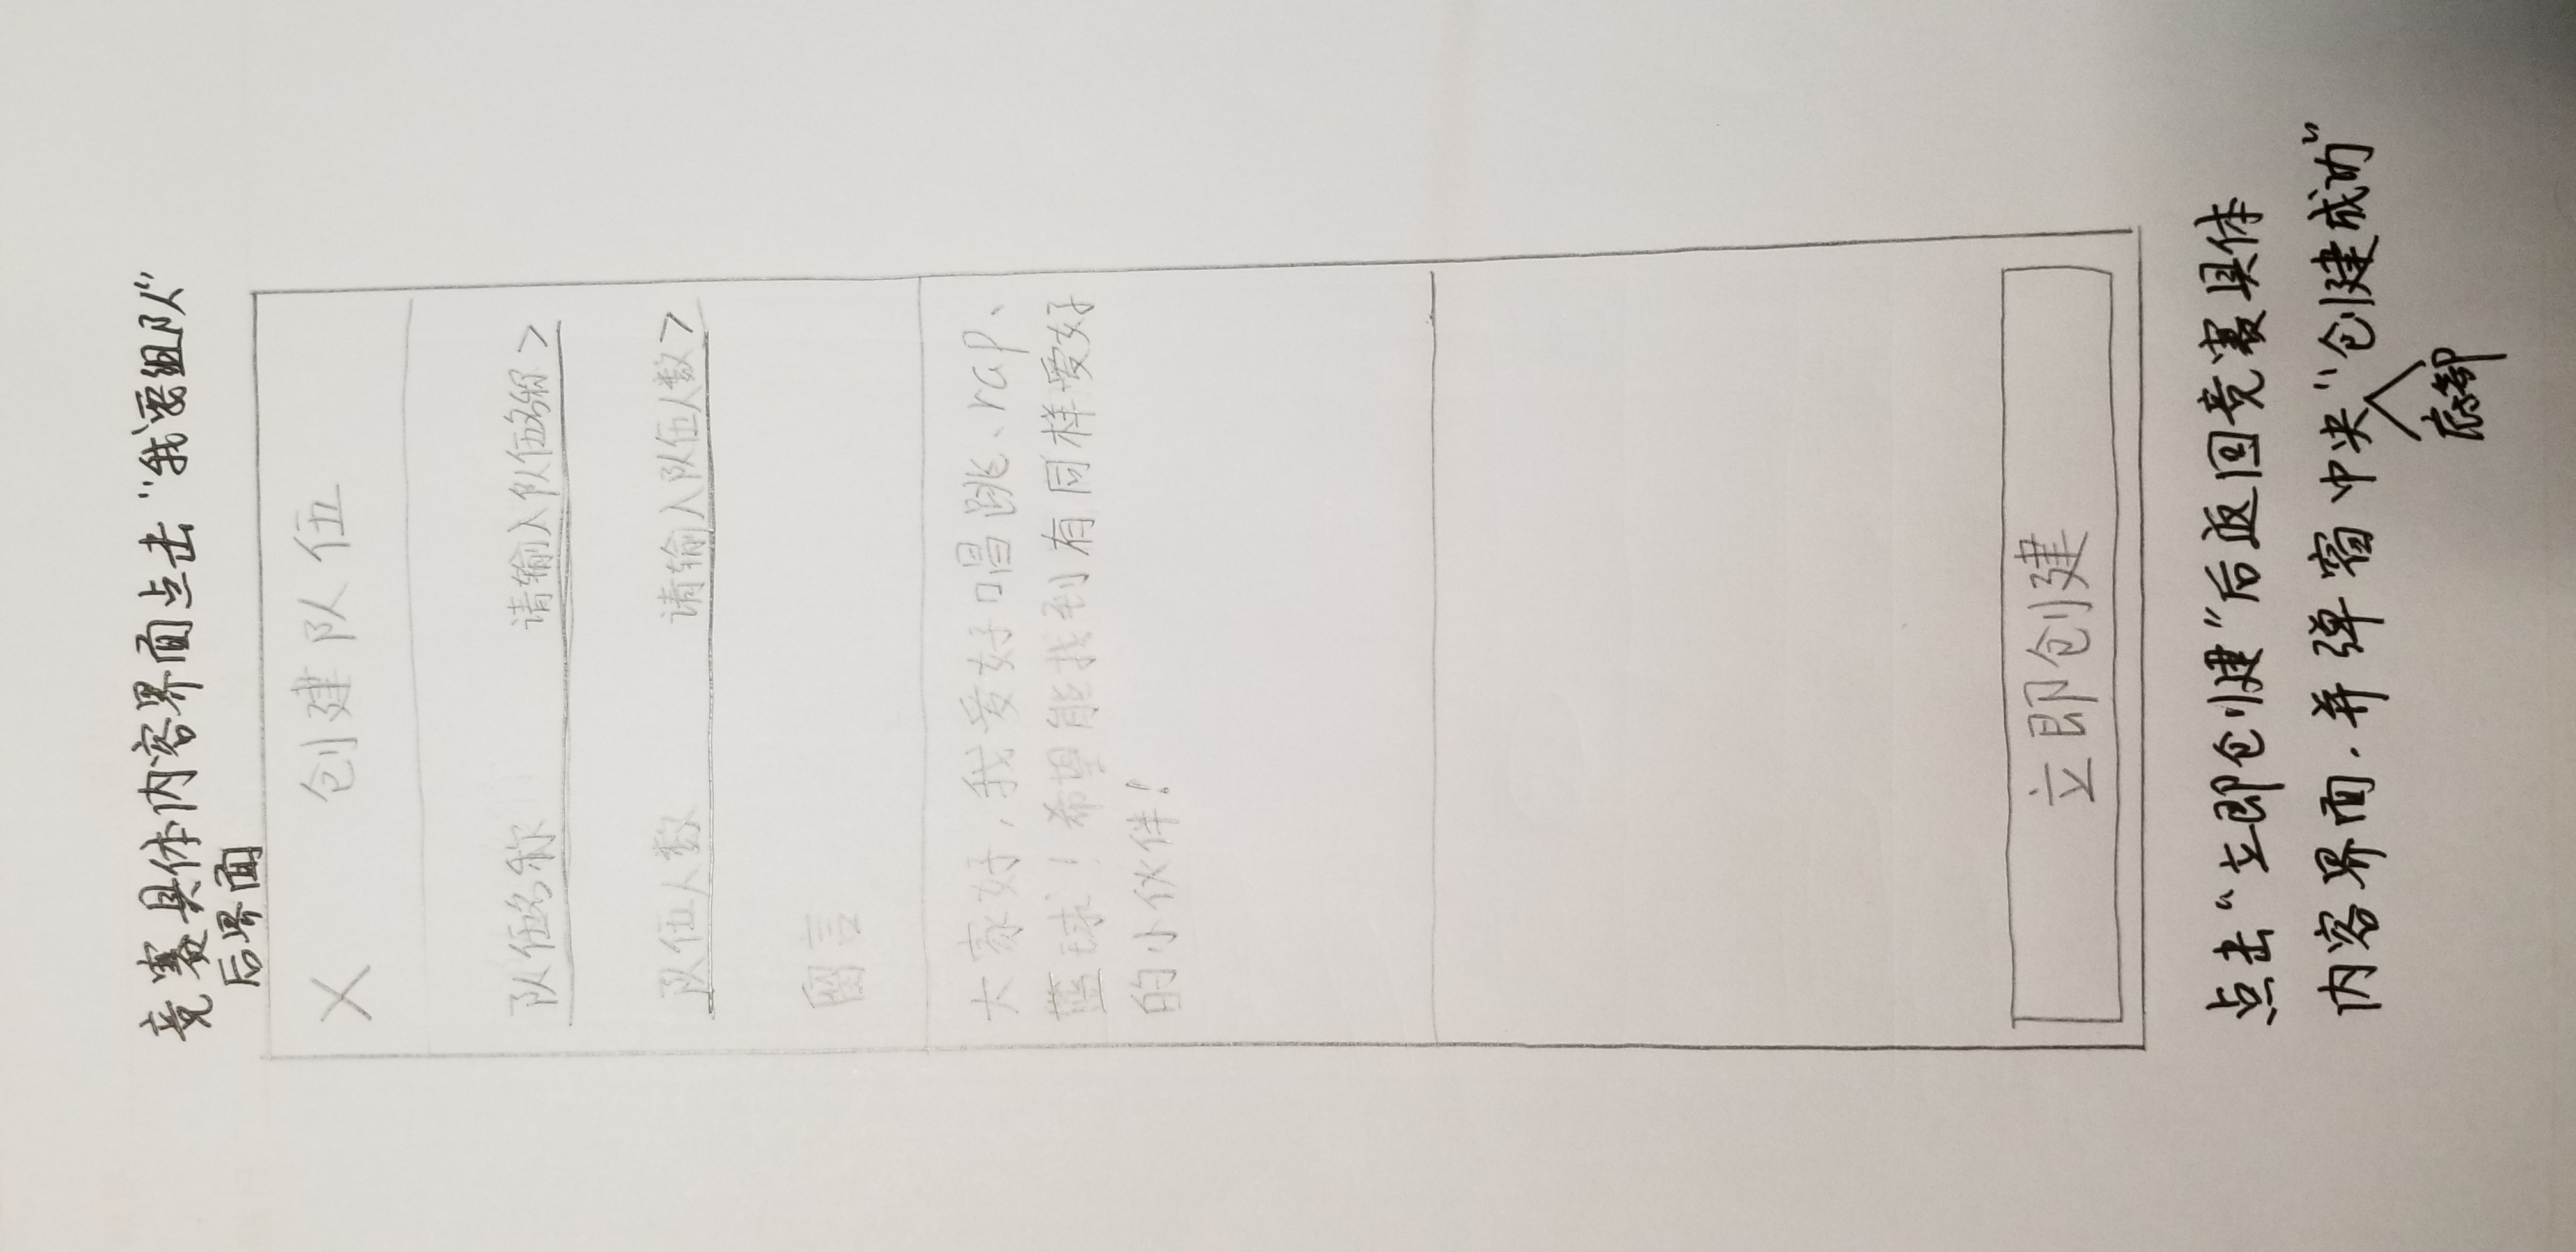 竞赛具体内容界面点击“我要组队”
后界面
X 创建队伍
队伍名称 请输入队伍名称 >
队伍人数 请输入队伍人数 >
留言
大家好,我爱好唱跳、rap、
蓝球!希望能找到有同样爱好
的小伙伴!
立即创建
点击“立即创建”后返回竞赛具体
内容界面.并弹窗中央“创建成功”
底部